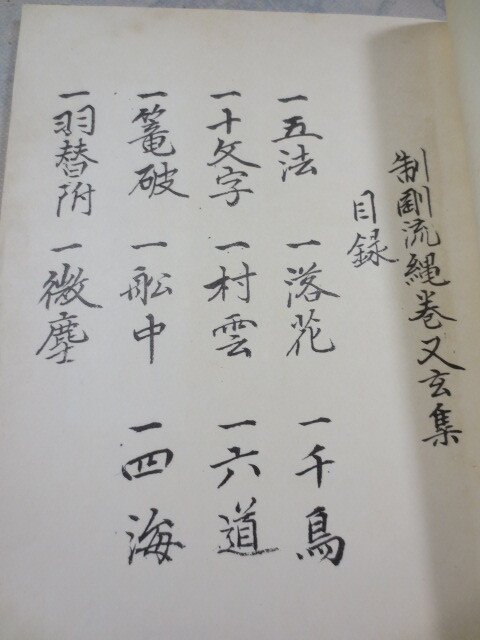 制剛流縄巻又玄集
目録
一五法 一落花 一千鳥
一十文字 一村雲 一六道
一篭破 一船中 一四海
一羽替附 一微塵